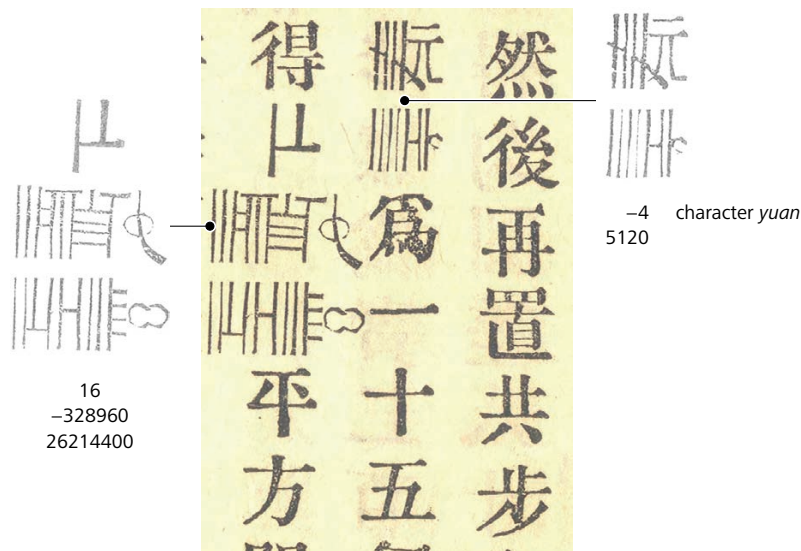 然後再置共步
元
爲一十五
得
平方
–4 character yuan
5120
16
–328960
26214400